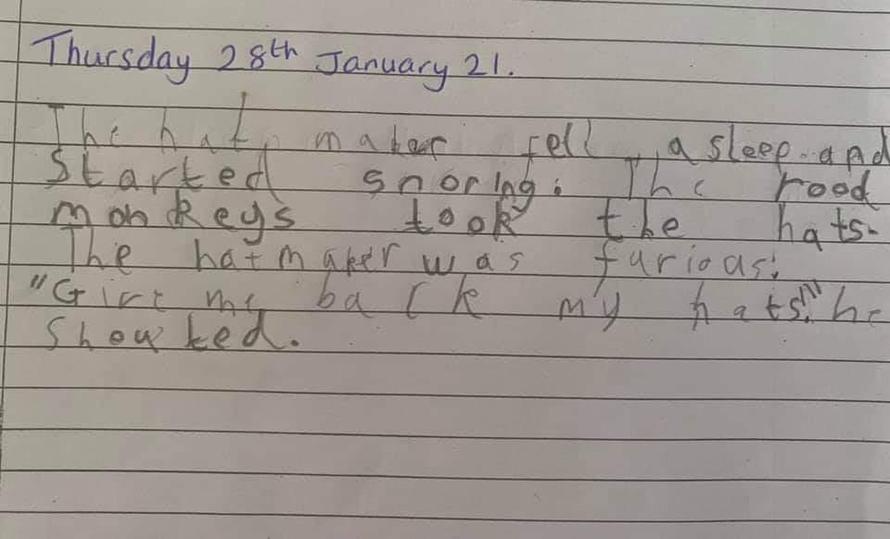 Thursday 28th January 21.
The hat maker fell asleep and
Started snoring. The rood
monkeys took the hats.
The hatmaker was furious.
"Give me back my hats" he
Shouted.